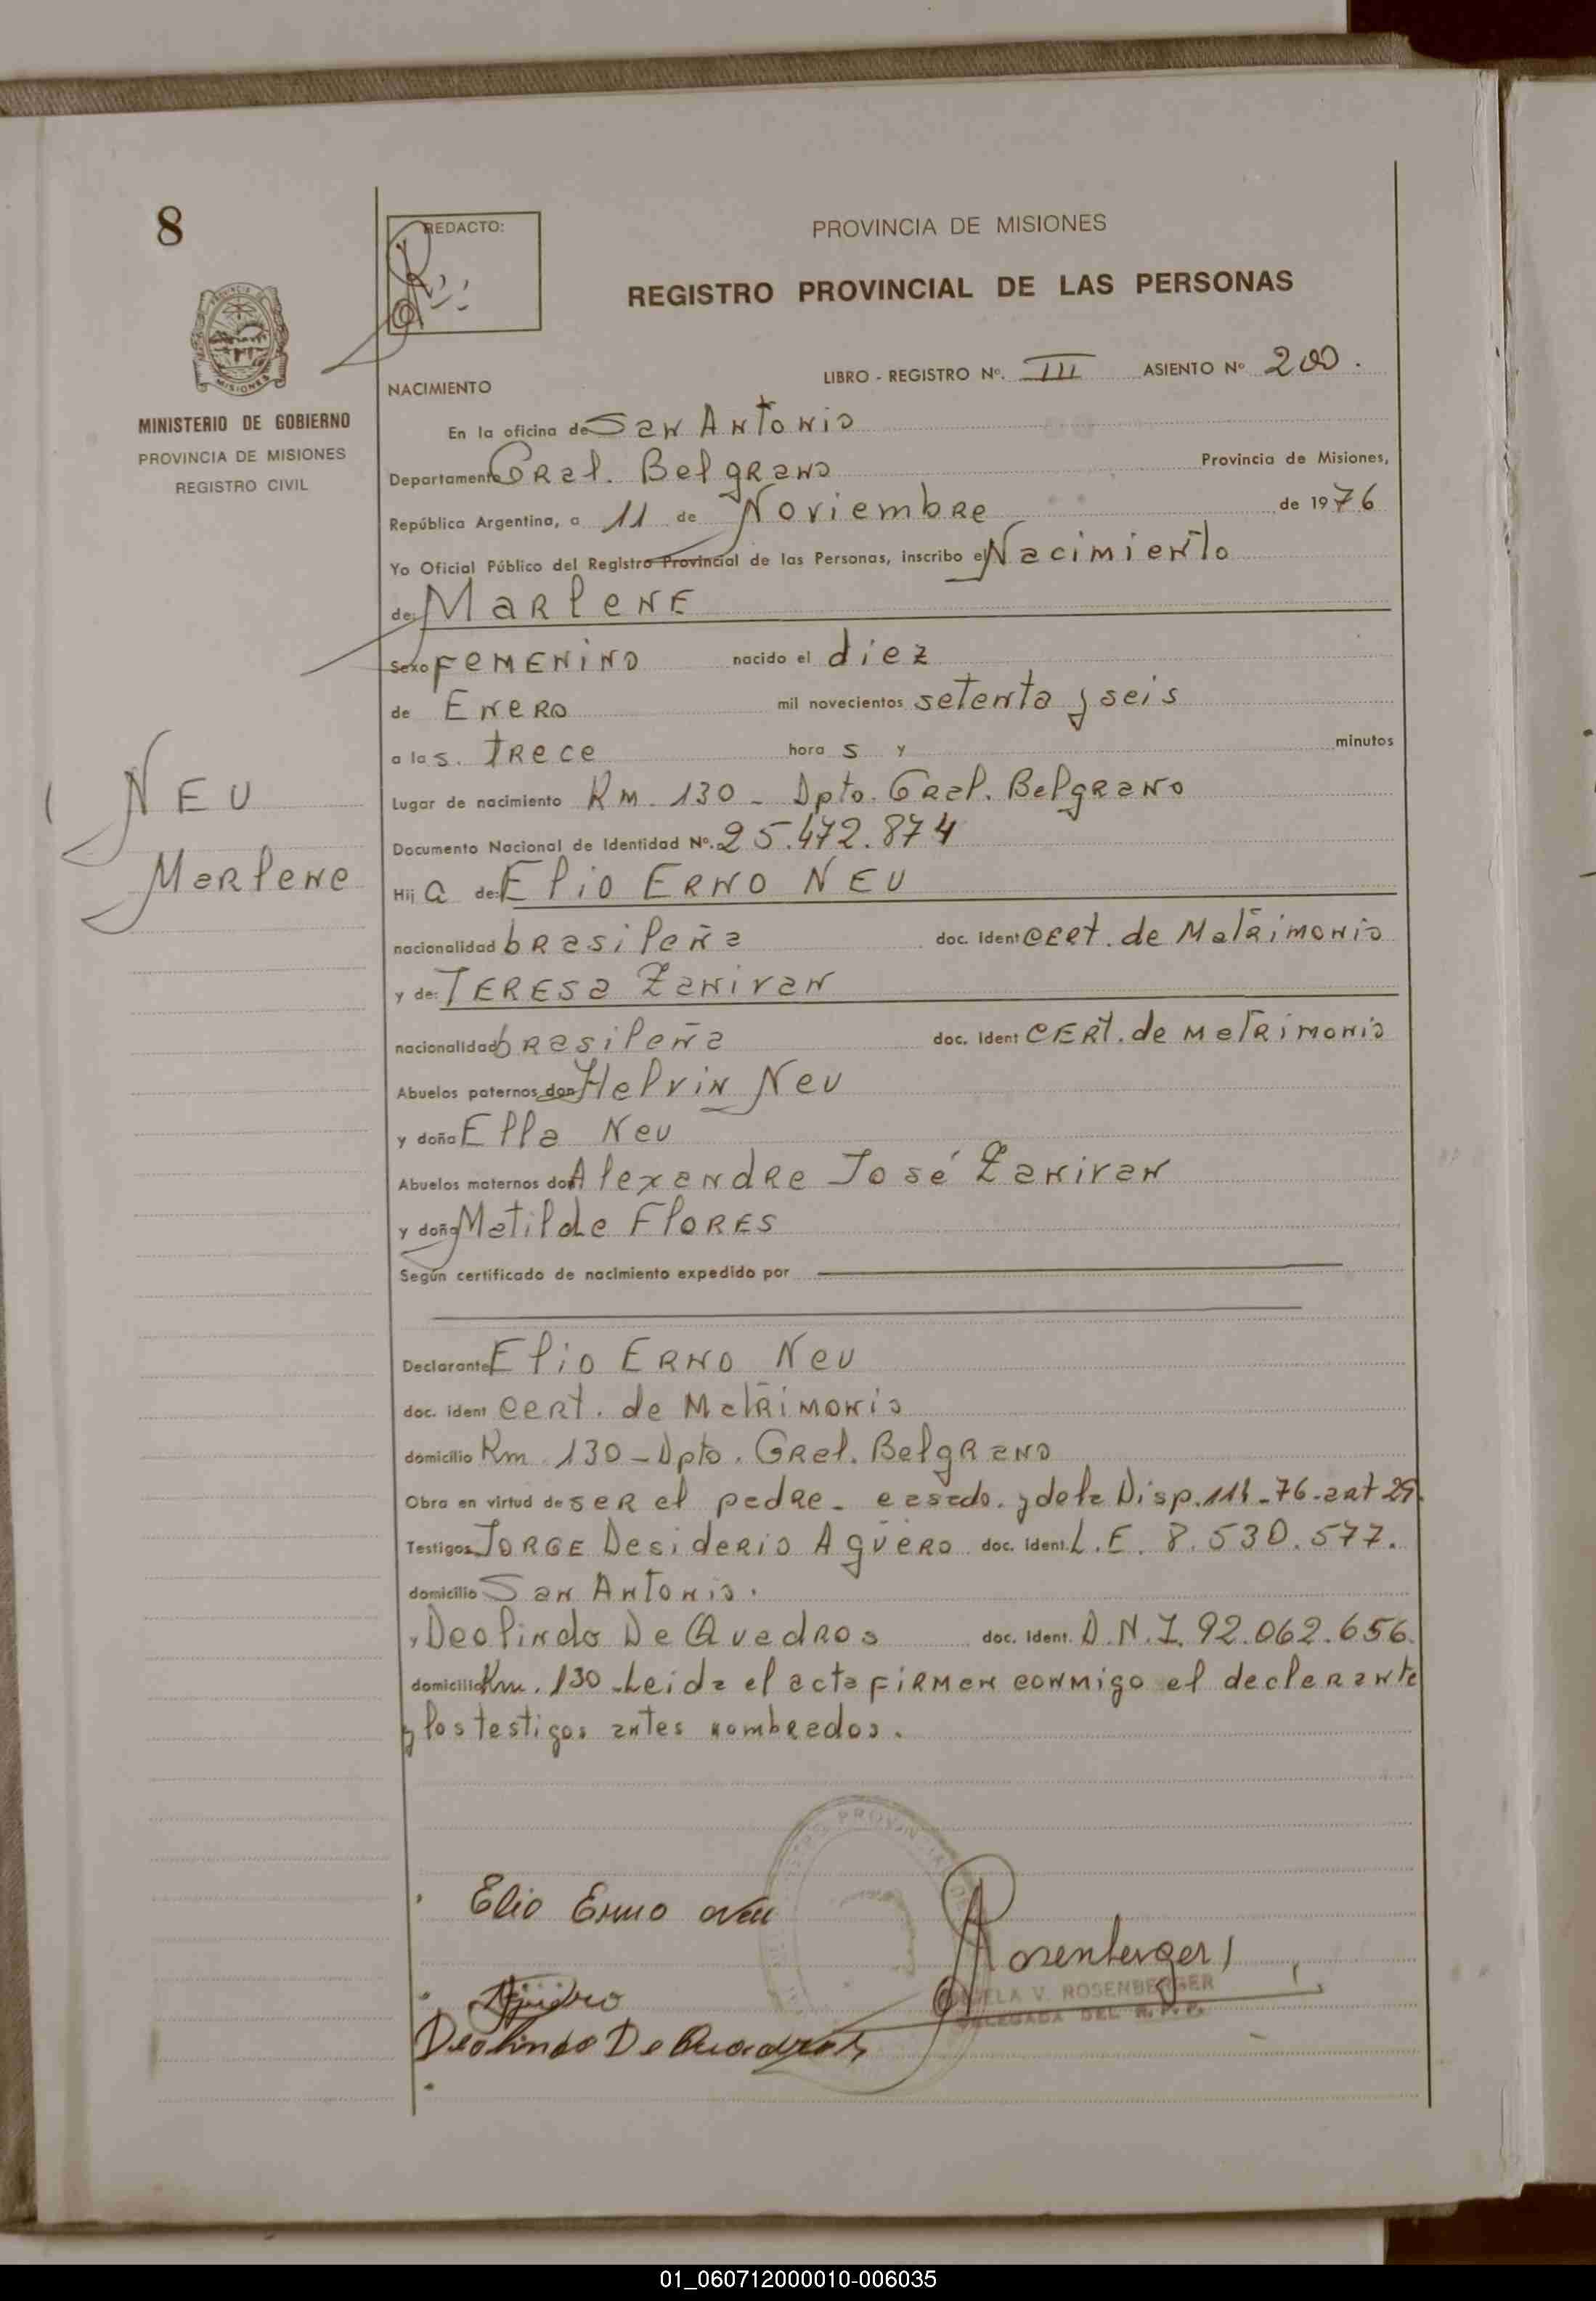 8
REDACTO:
PROVINCIA DE MISIONES
REGISTRO PROVINCIAL DE LAS PERSONAS
MINISTERIO DE GOBIERNO
PROVINCIA DE MISIONES
REGISTRO CIVIL
NEU
Marlene
NACIMIENTO LIBRO - REGISTRO Nº. III ASIENTO Nº 200.
En la oficina de San Antonio
Departamento Gral. Belgrano Provincia de Misiones,
República Argentina, a 11 de Noviembre de 1976
Yo Oficial Público del Registro Provincial de las Personas, inscribo el Nacimiento
de: Marlene
Sexo Femenino nacido el diez
de Enero mil novecientos setenta y seis
a las. trece hora s y minutos
Lugar de nacimiento Km. 130 - Dpto. Gral. Belgrano
Documento Nacional de Identidad Nº. 25.472.874
Hij a de: Elio Erno Neu
nacionalidad brasileña doc. Ident cert. de Matrimonio
y de: Teresa Zanivan
nacionalidad brasileña doc. Ident cert. de matrimonio
Abuelos paternos don Helvin Neu
y doña Ella Neu
Abuelos maternos don Alexandre José Zanivan
y doña Matilde Flores
Según certificado de nacimiento expedido por
Declarante Elio Erno Neu
doc. ident cert. de Matrimonio
domicilio Km 130 - Dpto. Gral. Belgrano
Obra en virtud de ser el padre - casado. y de la Disp. 111-76-art 29.
Testigos Jorge Desiderio Agüero doc. Ident. L.E. 8.530.577.
domicilio San Antonio.
y Deolindo De Quadros doc. Ident. D.N.I. 92.062.656.
domicilio Km. 130 - Leida el acta firman conmigo el declarante
y los testigos antes nombrados.
Elio Erno Neu
Rosenberger
V. ROSENBERGER
DELEGADA DEL R.P.P.
Deolindo De Quadros
01_060712000010-006035